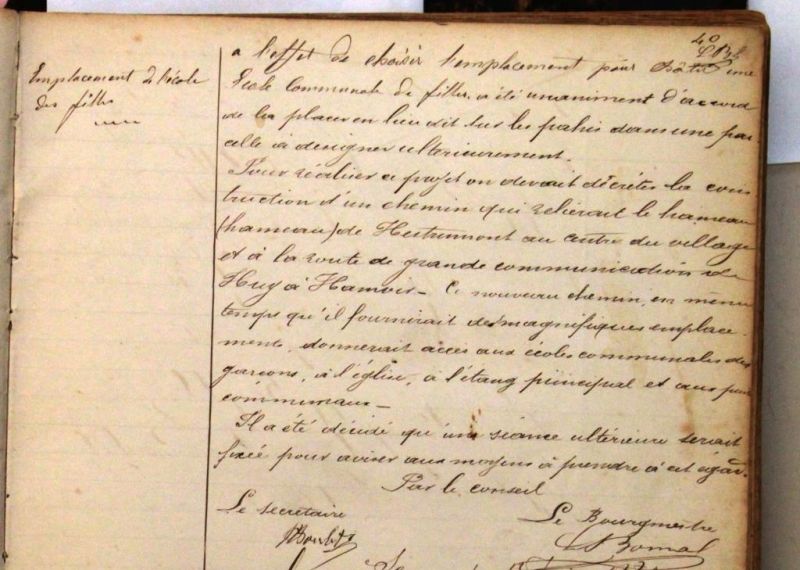 40
Emplacement de l'école
des filles
a l'effet de choisir l'emplacement pour bâtir une
Ecole communale de filles, a été unaniment d'accord
de la placer en lieu dit sur les pahis dans une par
celle à désigner ultérieurement.
Pour réaliser ce projet on devait décréter la cons
truction d'un chemin qui relierait le hameau
(hameau) de Hestrumont au centre du village
et à la route de grande communication de
Huy à Hamoir – Ce nouveau chemin, en même
temps qu'il fournirait des magnifiques emplace-
ments, donnerait accès aux écoles communales des
garçons, à l'église, à l'étang principal et aux
communaux –
Il a été décidé qu'une séance ultérieure serait
fixée pour aviser aux moyens à prendre à cet égard.
Par le conseil
Le secrétaire
Le Bourgmestre
Bomal